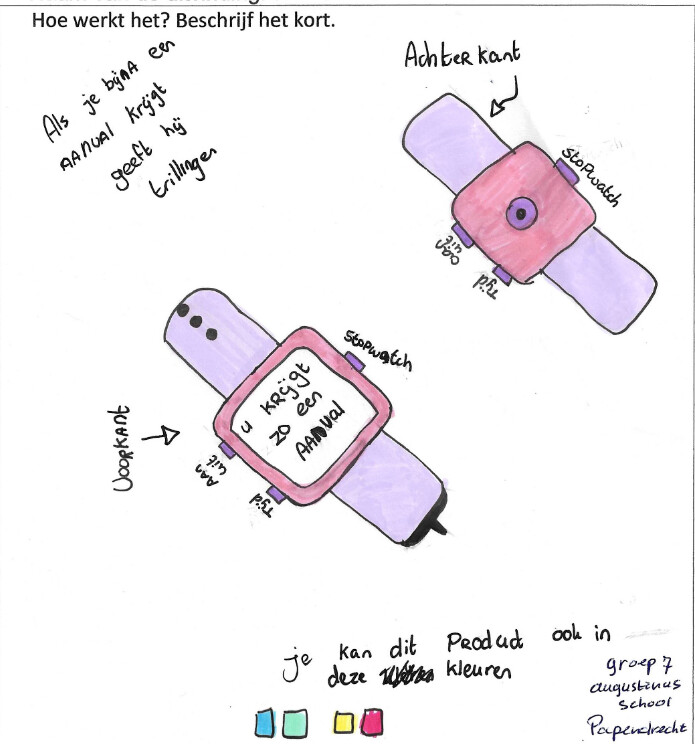 Hoe werkt het? Beschrijf het kort.
Als je bijna een
AANVAL krijgt
geeft hij
trillingen
Achterkant
Stopwatch
Aan
uit
Tijd
Stopwatch
u KRijgt
zo een
AANVAL
VOORKANT
Aan
uit
Tijd
je kan dit Product ook in
deze kleuren
groep 7
augustinus
school
Papendrecht